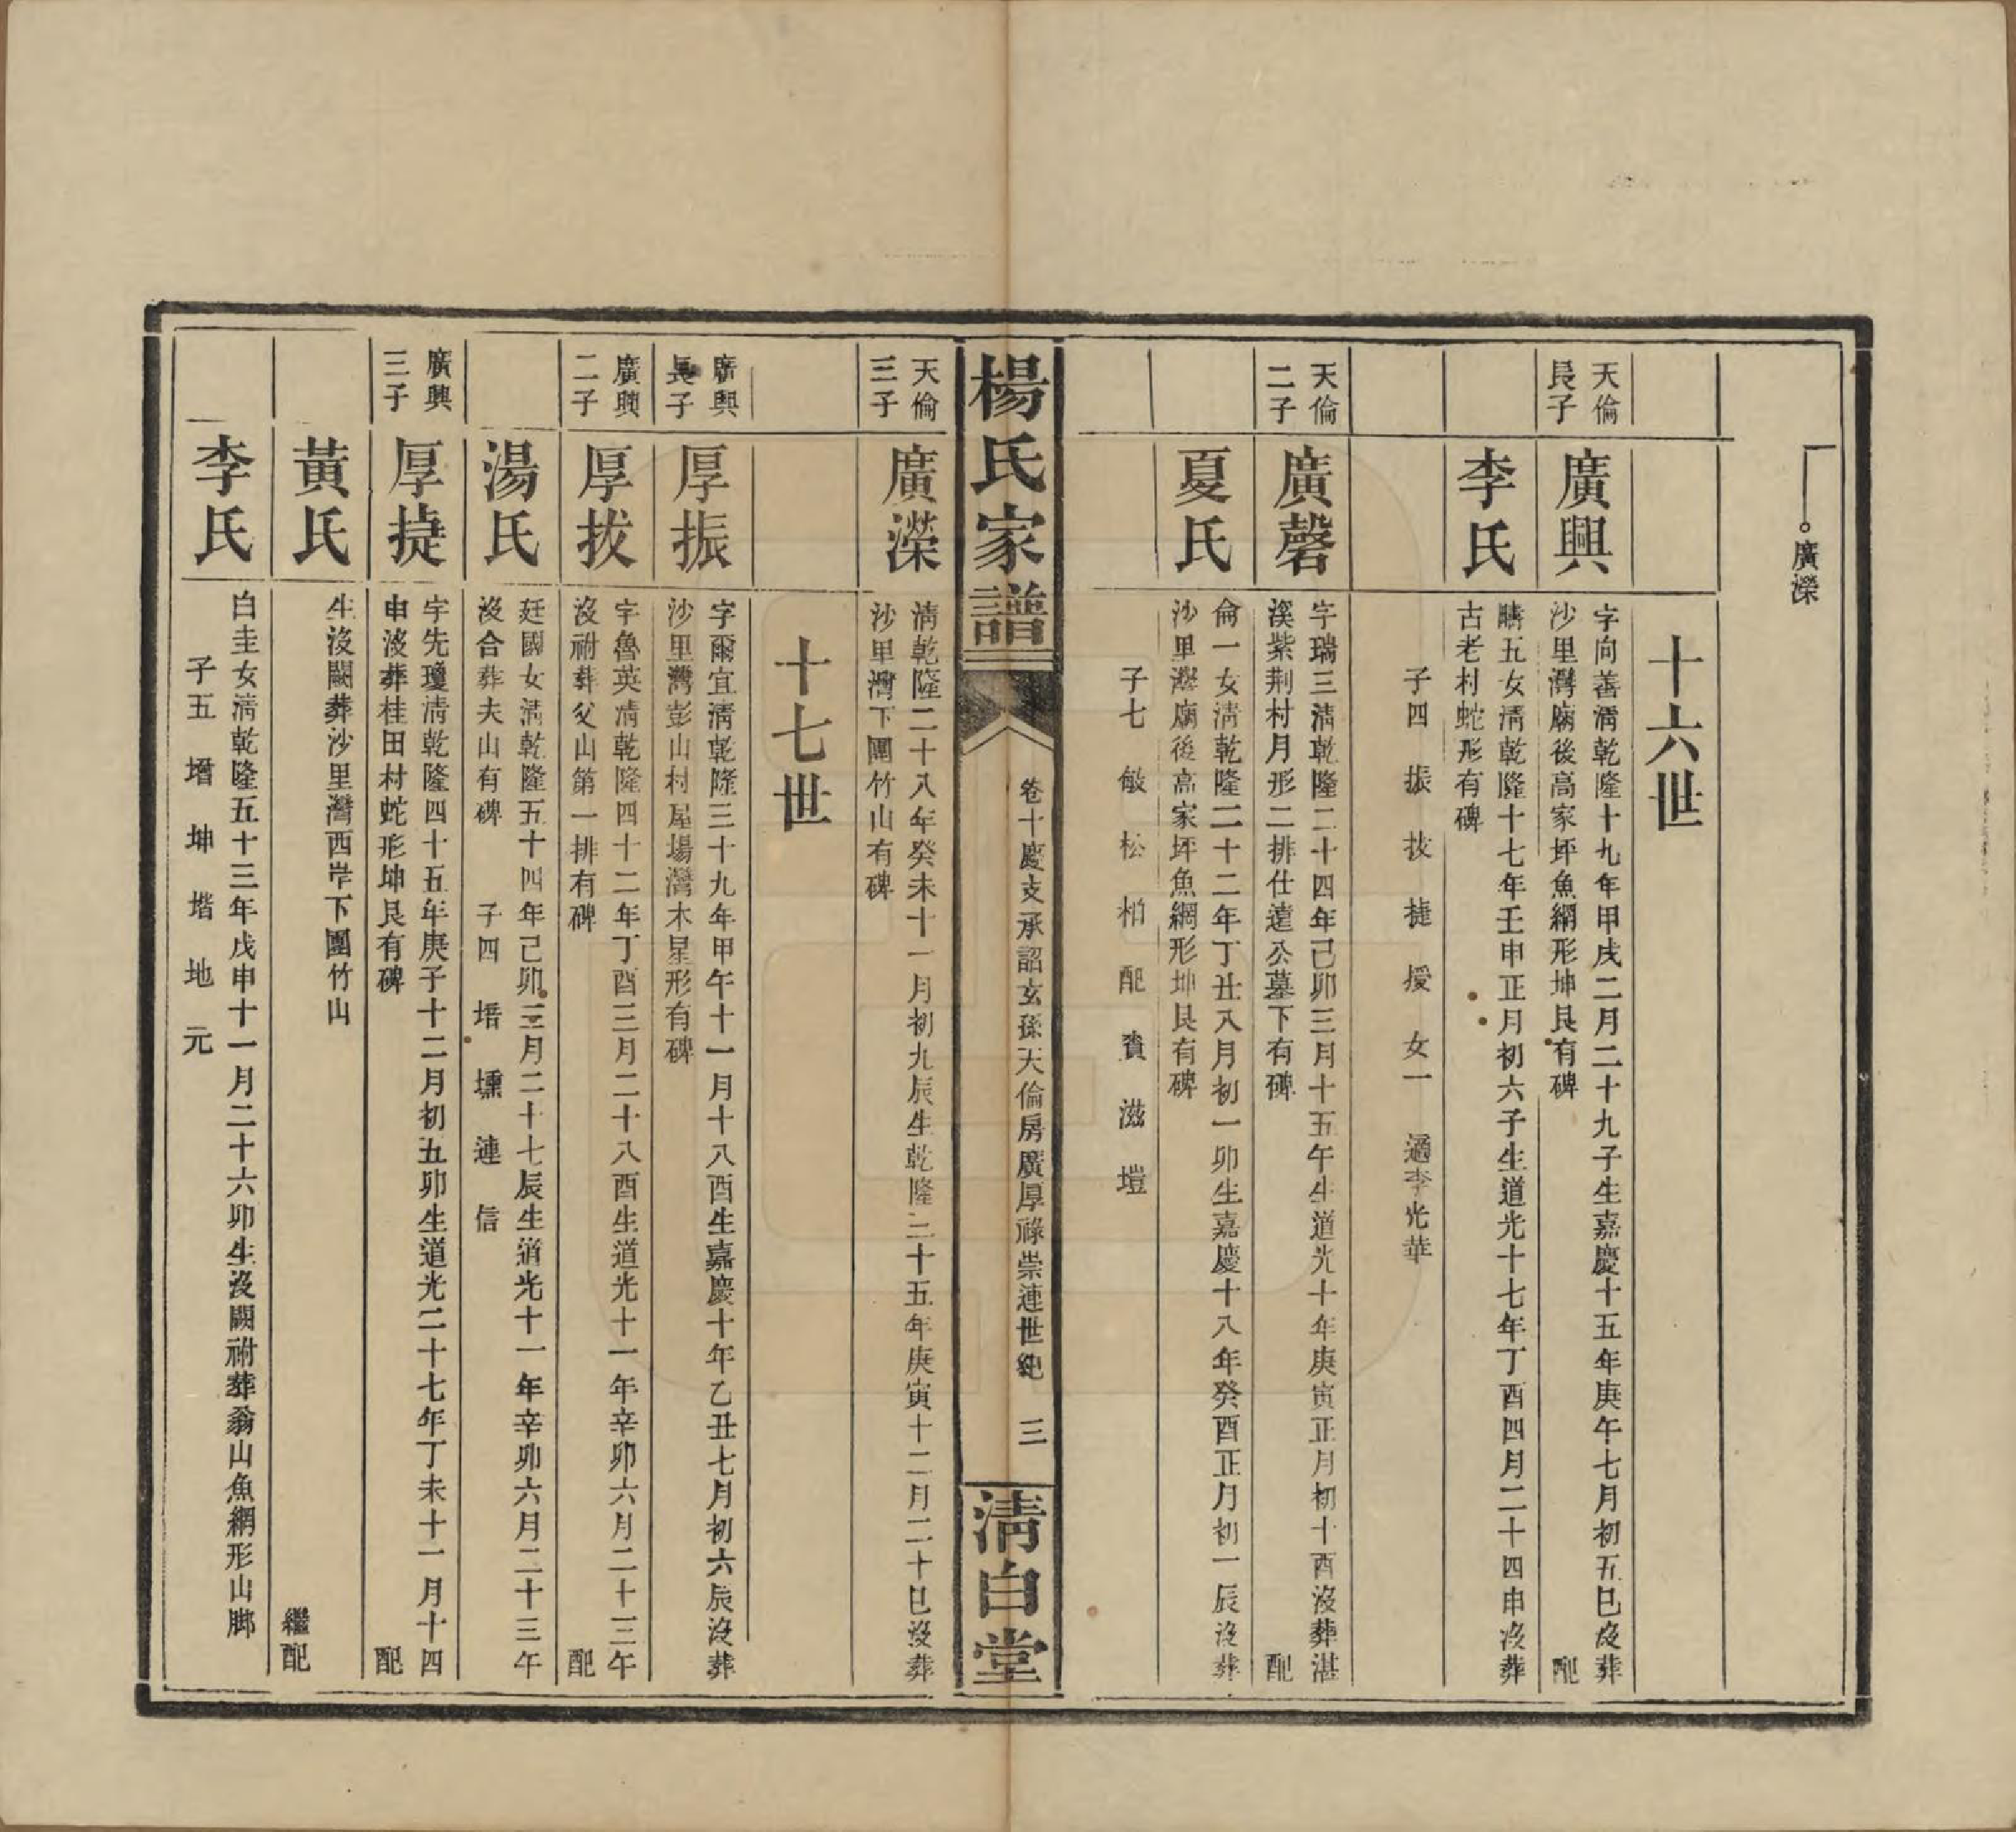 廣濚
十六世
天倫
長子
廣興
字向善清乾隆十九年甲戌二月二十九子生嘉慶十五年庚午七月初五巳沒葬
沙里灣廟後高家坪魚網形坤艮有碑 配
李氏
疇五女清乾隆十七年壬申正月初六子生道光十七年丁酉四月二十四申沒葬
古老村蛇形有碑
子四 振 拔 捷 授 女一 適李光華
天倫
二子
廣磬
字瑞三清乾隆二十四年己卯三月十五午生道光十年庚寅正月初十酉沒葬湛
溪紫荆村月形二排仕遠公墓下有碑 配
夏氏
倫一女清乾隆二十二年丁丑八月初一卯生嘉慶十八年癸酉正月初一辰沒葬
沙里灣廟後高家坪魚網形坤艮有碑
子七 敏 松 柏 配 賚 滋 塏
楊氏家譜
卷十慶支承詔玄孫天倫房廣厚祿崇連世紀 三
清白堂
天倫
三子
廣濚
清乾隆二十八年癸未十一月初九辰生乾隆三十五年庚寅十二月二十巳沒葬
沙里灣下團竹山有碑
十七世
廣興
長子
厚振
字爾宜清乾隆三十九年甲午十一月十八酉生嘉慶十年乙丑七月初六辰沒葬
沙里灣彭山村屋場灣木星形有碑
廣興
二子
厚拔
字魯英清乾隆四十二年丁酉三月二十八酉生道光十一年辛卯六月二十三午
沒祔葬父山第一排有碑 配
湯氏
廷國女清乾隆五十四年己卯三月二十七辰生道光十一年辛卯六月二十三午
沒合葬夫山有碑 子四 培 壎 連 信
廣興
三子
厚捷
字先瓊清乾隆四十五年庚子十二月初五卯生道光二十七年丁未十一月十四
申沒葬桂田村蛇形坤艮有碑 配
黃氏
生沒闕葬沙里灣西岸下團竹山
繼配
李氏
白圭女清乾隆五十三年戊申十一月二十六卯生沒闕祔葬翁山魚網形山腳
子五 增 坤 堦 地 元